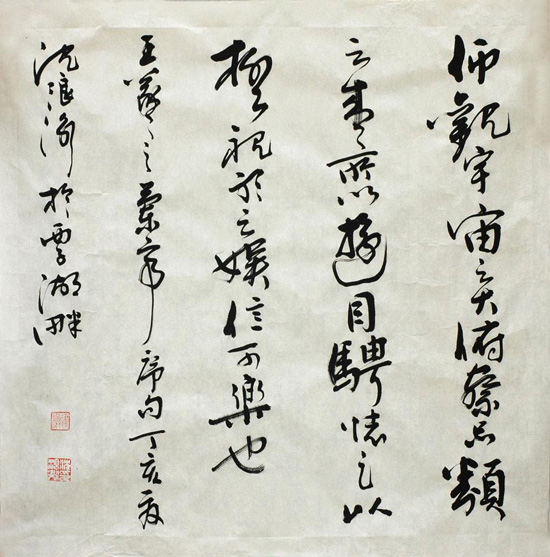 仰觀宇宙之大俯察品類
之盛所以遊目騁懷足以
極視聽之娛信可樂也
王羲之蘭亭序句丁亥夏
沈浪於湖畔